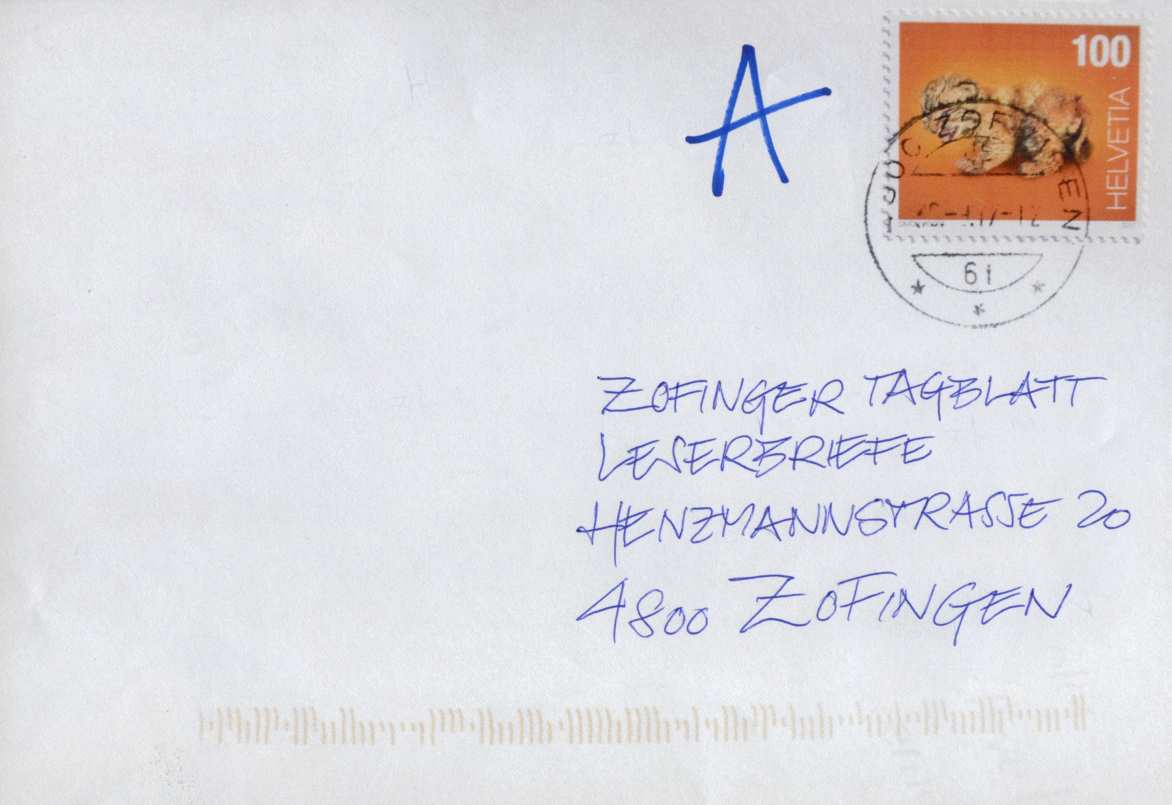 A
100
HELVETIA
61
ZOFINGER TAGBLATT
LESERBRIEFE
HENZMANNSTRASSE 20
4800 ZOFINGEN